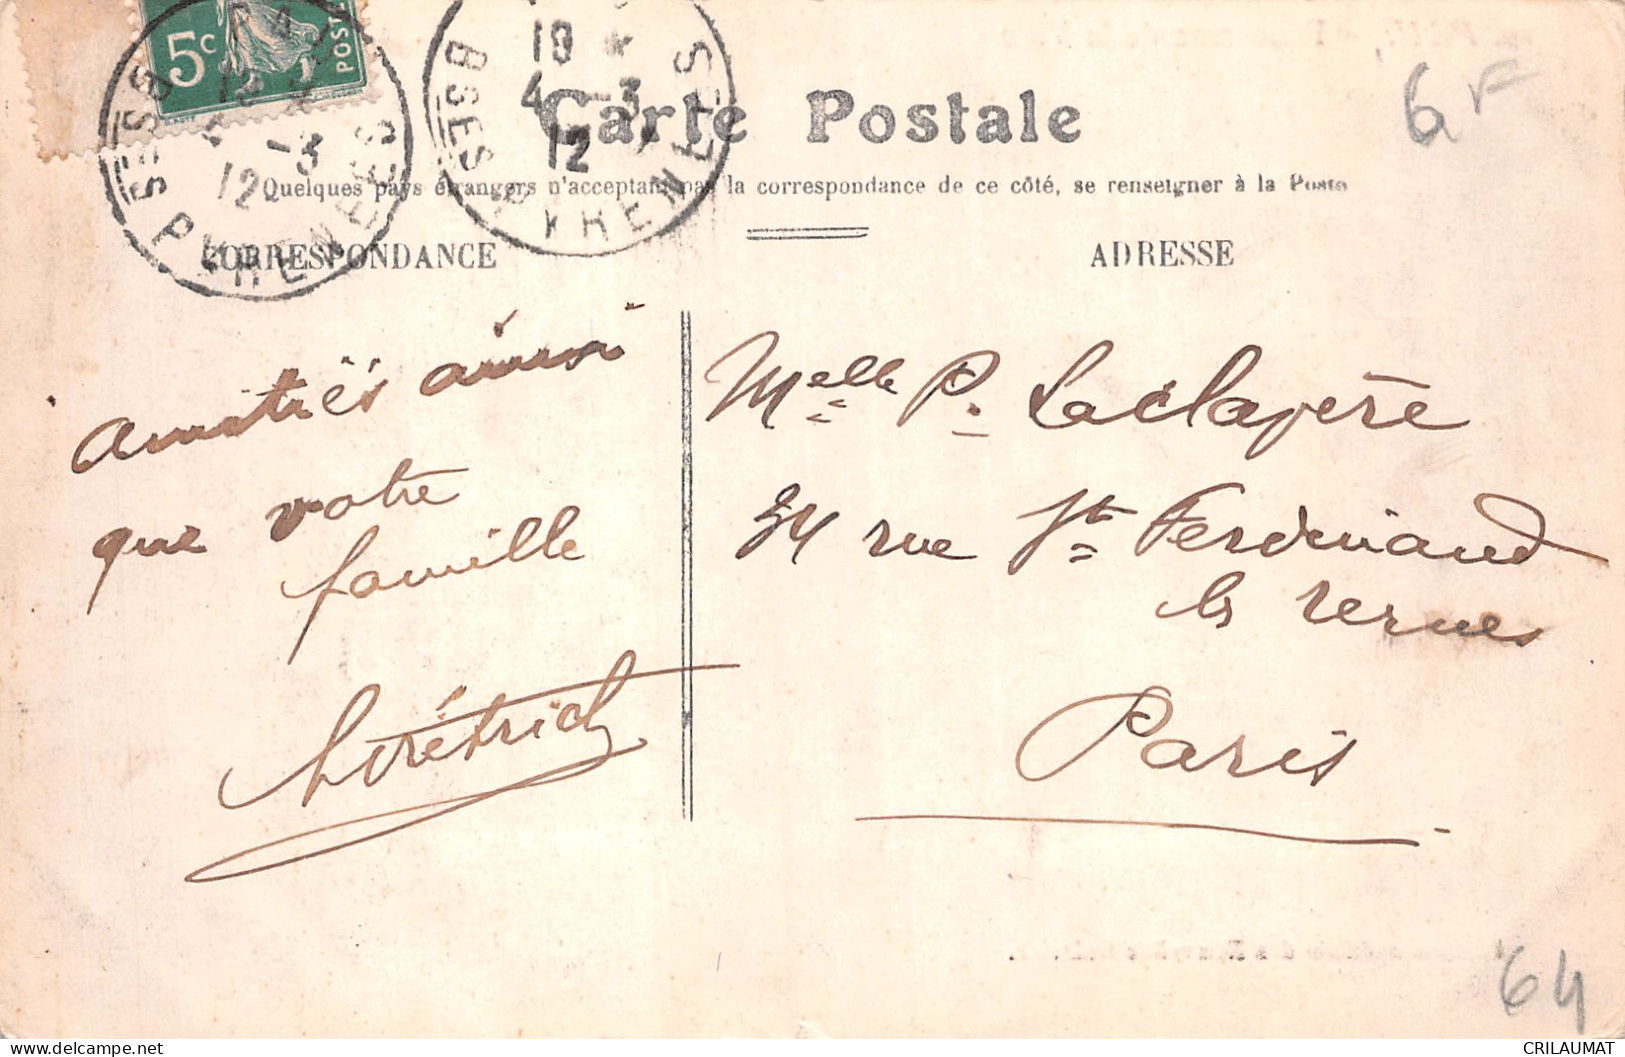 5c
POSTE
12
-3
12
BSSES PYRENEES
10 *
4 -3
12
BSES PYRENEES
6F
Carte Postale
Quelques pays étrangers n'acceptant pas la correspondance de ce côté, se renseigner à la Poste
CORRESPONDANCE
ADRESSE
amitiés ainsi
que votre
famille
Melle P. Laclapère
34 rue St Ferdinand
les Ternes
Paris
64
CRILAUMAT